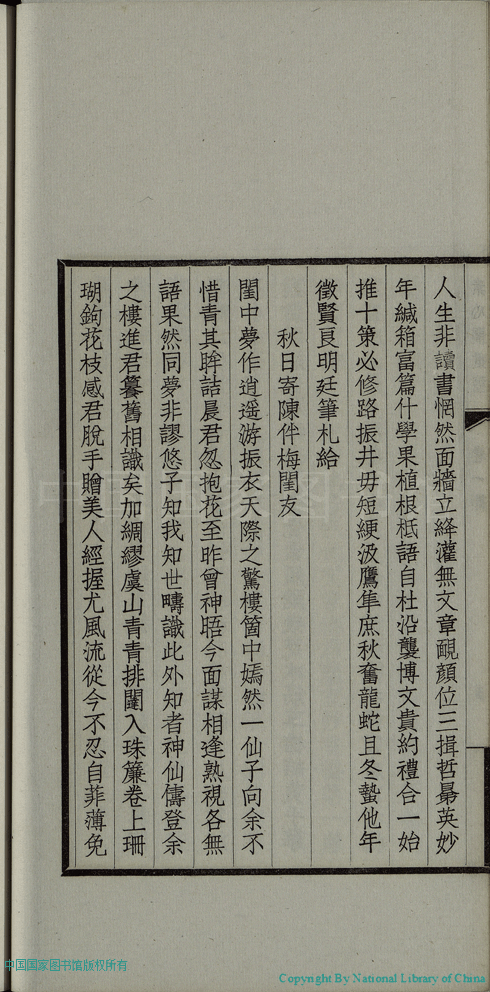 人生非讀書惘然面牆立絳灌無文章靦顏位三揖哲勗英妙
年緘箱富篇什學果植根柢語自杜沿襲博文貴約禮合一始
推十策必修路振井毋短綆汲鷹隼庶秋奮龍蛇且冬蟄他年
徵賢良明廷筆札給
秋日寄陳伴梅閨友
閨中夢作逍遥游振衣天際之驚樓箇中嫣然一仙子向余不
惜青其眸詰晨君忽抱花至昨曾神晤今面謀相逢熟視各無
語果然同夢非謬悠子知我知世疇識此外知者神仙儔登余
之樓進君饔舊相識矣加綢繆虞山青青排闥入珠簾卷上珊
瑚鉤花枝感君脫手贈美人經握尤風流從今不忍自菲薄免
中国国家图书馆版权所有
Copyright By National Library of China